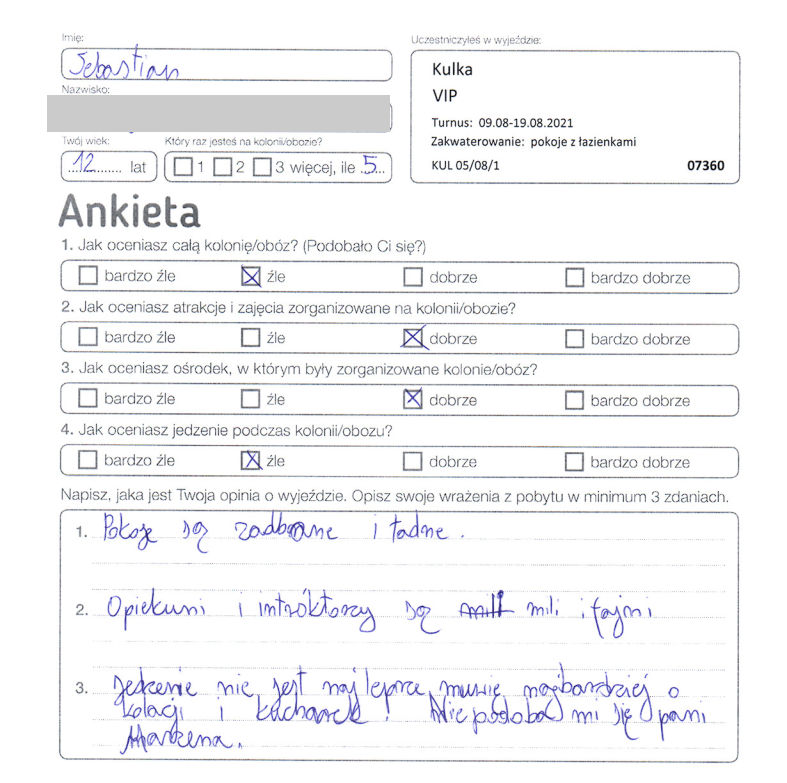 Imię:
Sebastian
Nazwisko:
Twój wiek:
Który raz jesteś na kolonii/obozie?
12 lat
1 2 3 więcej, ile 5
Uczestniczyłeś w wyjeździe:
Kulka
VIP
Turnus: 09.08-19.08.2021
Zakwaterowanie: pokoje z łazienkami
KUL 05/08/1 07360
Ankieta
1. Jak oceniasz całą kolonię/obóz? (Podobało Ci się?)
bardzo źle źle dobrze bardzo dobrze
2. Jak oceniasz atrakcje i zajęcia zorganizowane na kolonii/obozie?
bardzo źle źle dobrze bardzo dobrze
3. Jak oceniasz ośrodek, w którym były zorganizowane kolonie/obóz?
bardzo źle źle dobrze bardzo dobrze
4. Jak oceniasz jedzenie podczas kolonii/obozu?
bardzo źle źle dobrze bardzo dobrze
Napisz, jaka jest Twoja opinia o wyjeździe. Opisz swoje wrażenia z pobytu w minimum 3 zdaniach.
1. Pokoje są zadbane i ładne.
2. Opiekuni i intróktorzy są mili i fajni
3. Jedzenie nie jest najleprze, muwię najbardziej o
kolacji i kucharek! Nie podoba mi się pani
Marzena.